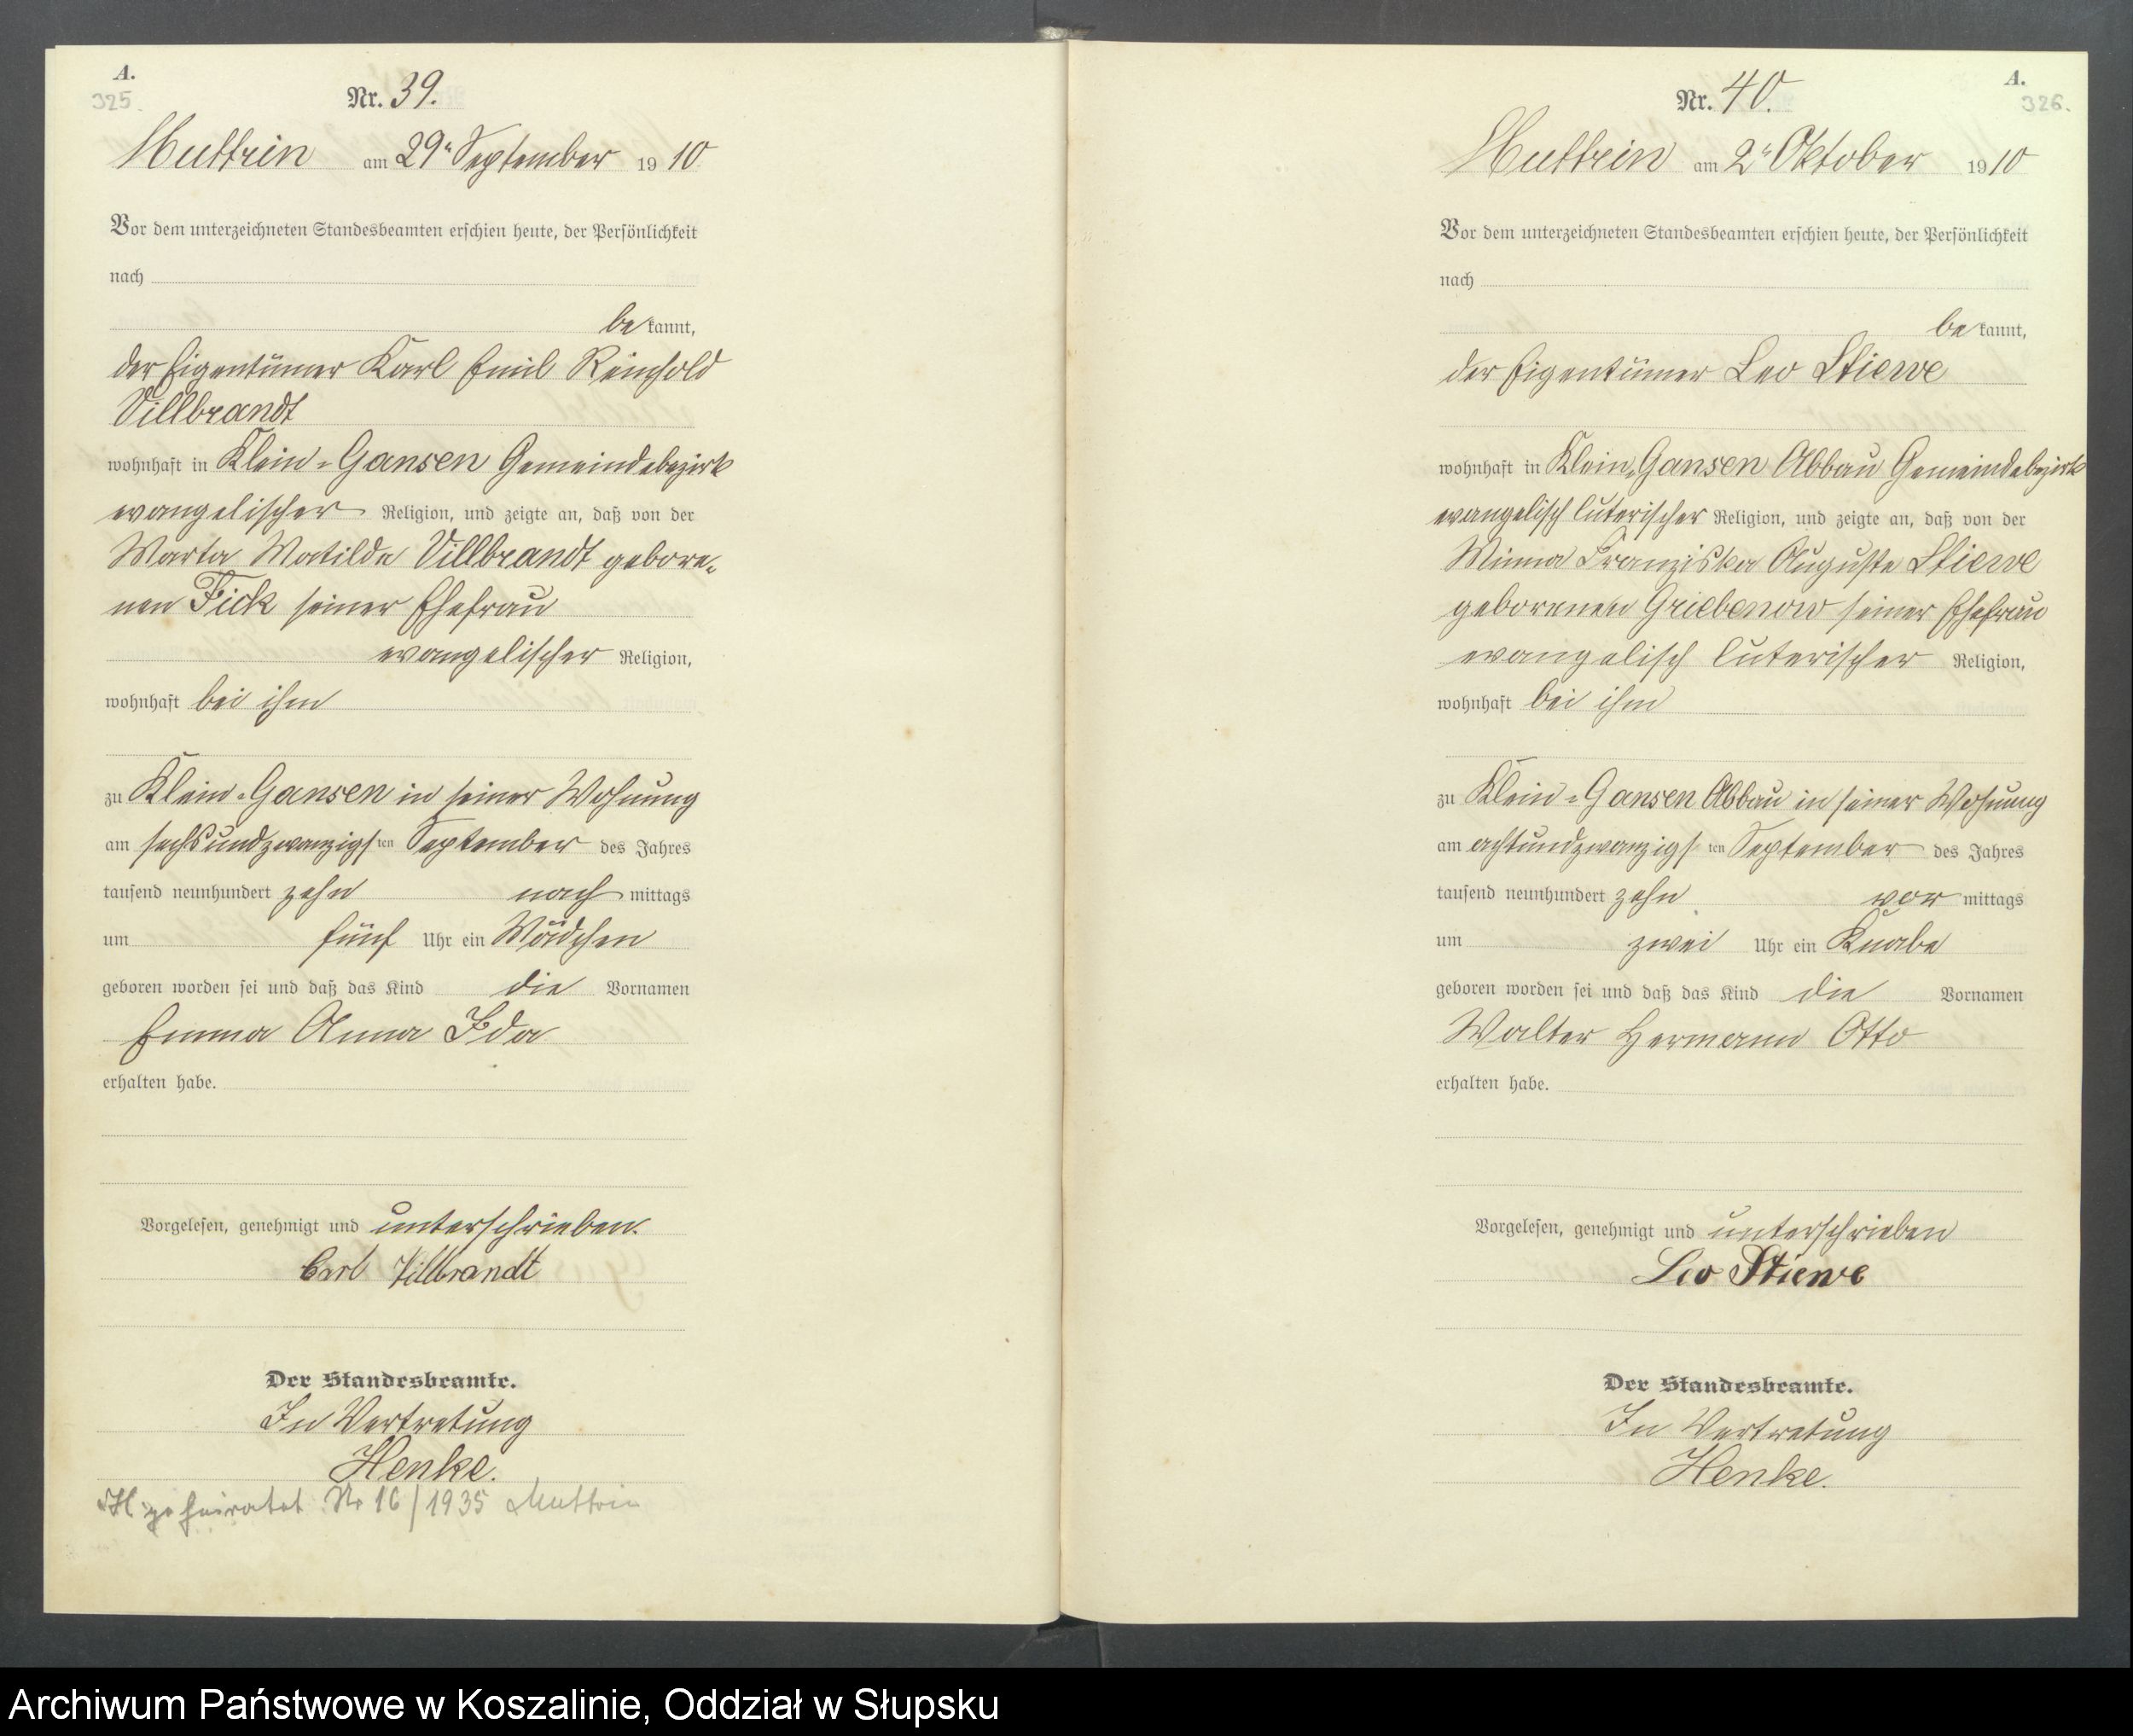 A.
325.
Nr. 39.
Muttrin am 29n September 1910
Vor dem unterzeichneten Standesbeamten erschien heute, der Persönlichkeit
nach
be kannt,
der Eigentümer Karl Emil Reinhold
Villbrandt
wohnhaft in Klein-Gansen Gemeindebezirk
evangelischer Religion, und zeigte an, daß von der
Marta Matilde Villbrandt gebore-
nen Fick seiner Ehefrau
evangelischer Religion,
wohnhaft bei ihm
zu Klein-Gansen in seiner Wohnung
am sechsundzwanzigsten September des Jahres
tausend neunhundert zehn nach mittags
um fünf Uhr ein Mädchen
geboren worden sei und daß das Kind die Vornamen
Emma Anna Ida
erhalten habe.
Vorgelesen, genehmigt und unterschrieben.
Carl Villbrandt
Der Standesbeamte.
In Vertretung
Henke.
geheiratet Nr 16/1935 Muttrin
A.
326.
Nr. 40.
Muttrin am 2n Oktober 1910
Vor dem unterzeichneten Standesbeamten erschien heute, der Persönlichkeit
nach
be kannt,
der Eigentümer Leo Stiewe
wohnhaft in Klein-Gansen Abbau Gemeindebezirk
evangelisch luterischer Religion, und zeigte an, daß von der
Minna Franziska Auguste Stiewe
geborenen Griebenow seiner Ehefrau
evangelisch luterischer Religion,
wohnhaft bei ihm
zu Klein-Gansen Abbau in seiner Wohnung
am achtundzwanzigsten September des Jahres
tausend neunhundert zehn vor mittags
um zwei Uhr ein Knabe
geboren worden sei und daß das Kind die Vornamen
Walter Hermann Otto
erhalten habe.
Vorgelesen, genehmigt und unterschrieben
Leo Stiewe
Der Standesbeamte.
In Vertretung
Henke.
Archiwum Państwowe w Koszalinie, Oddział w Słupsku